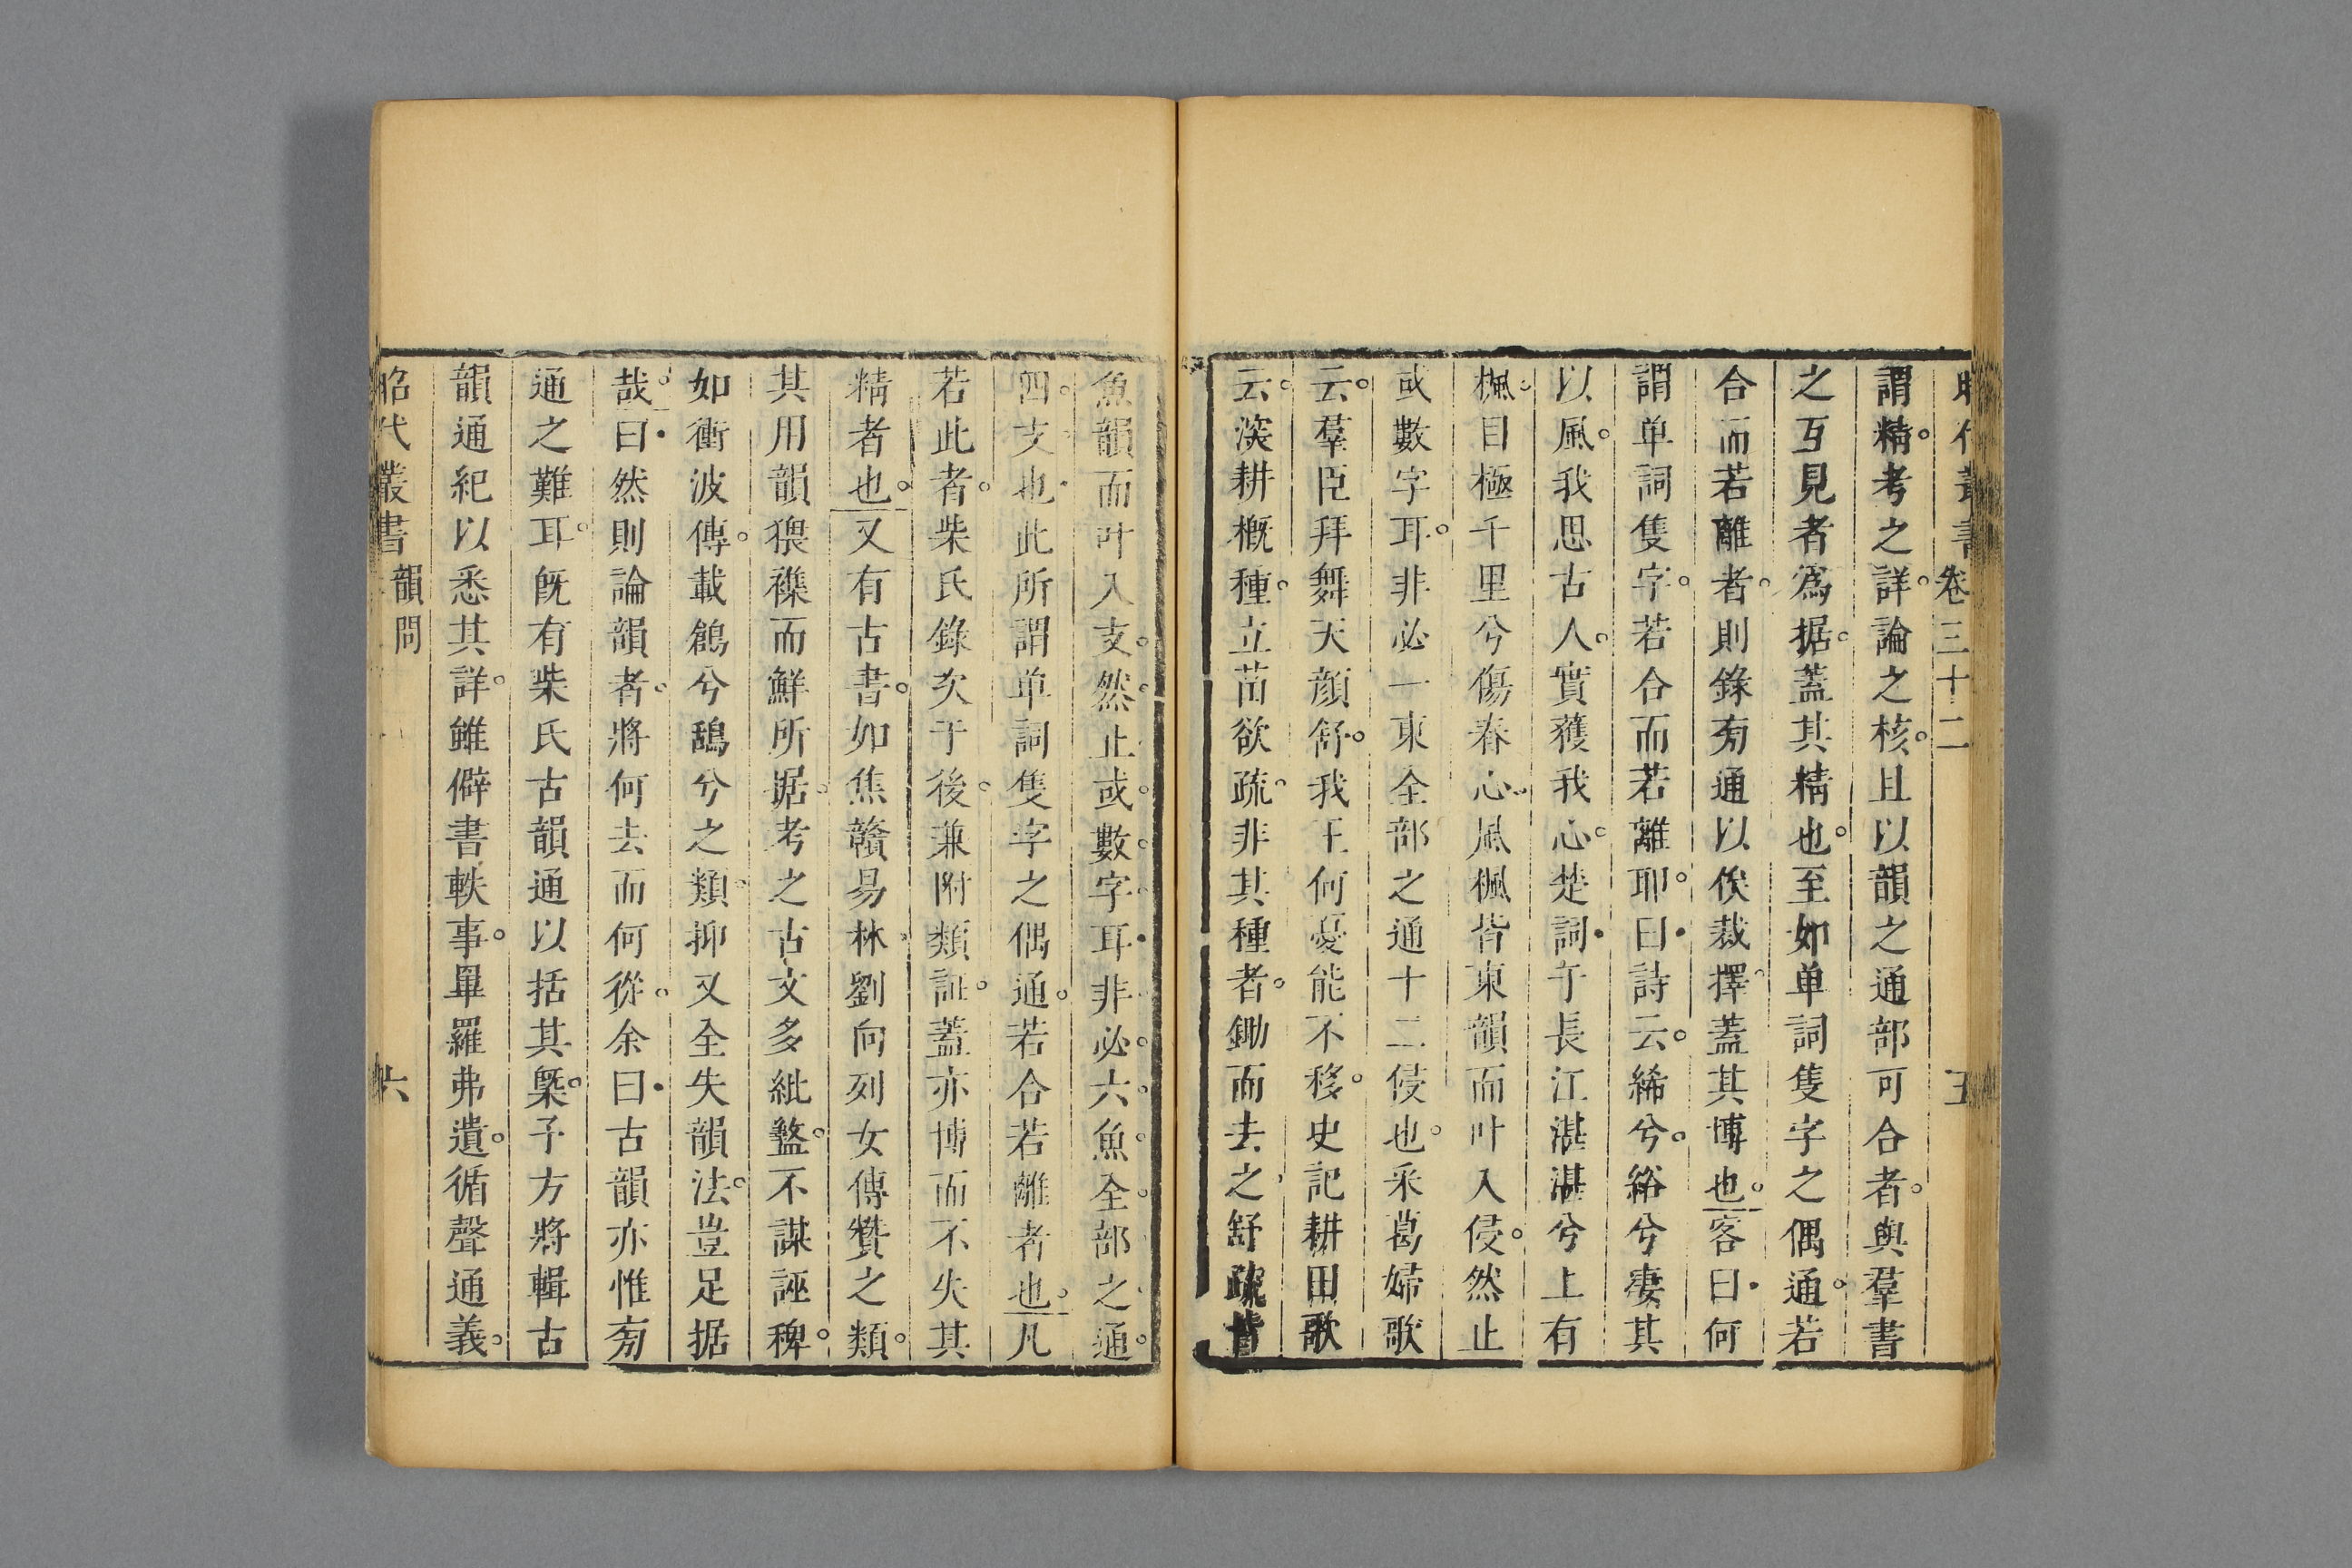 昭代叢書卷三十二 五
謂精考之詳論之核且以韻之通部可合者與羣書
之互見者爲据蓋其精也至如单詞隻字之偶通若
合而若離者則錄㫄通以俟裁擇蓋其博也客曰何
謂单詞隻字若合而若離耶曰詩云絺兮綌兮凄其
以風我思古人實獲我心楚詞于長江湛湛兮上有
楓目極千里兮傷春心風楓皆東韻而叶入侵然止
或數字耳非必一東全部之通十二侵也采葛婦歌
云羣臣拜舞天顔舒我王何憂能不移史記耕田歌
云㴱耕概種立苗欲疏非其種者鋤而去之舒疏皆
魚韻而叶入支然止或數字耳非必六魚全部之通
四支也此所謂单詞隻字之偶通若合若離者也凡
若此者柴氏錄次于後兼附類証蓋亦博而不失其
精者也又有古書如焦贛易林劉向列女傳贊之類
其用韻猥襍而鮮所据考之古文多紕盭不謀誣稗
如衝波傳載鶬兮鴰兮之類抑又全失韻法豈足据
哉曰然則論韻者將何去而何從余曰古韻亦惟㫄
通之難耳旣有柴氏古韻通以括其槩子方將輯古
韻通紀以悉其詳雖僻書軼事畢羅弗遺循聲通義
昭代叢書 韻問 六